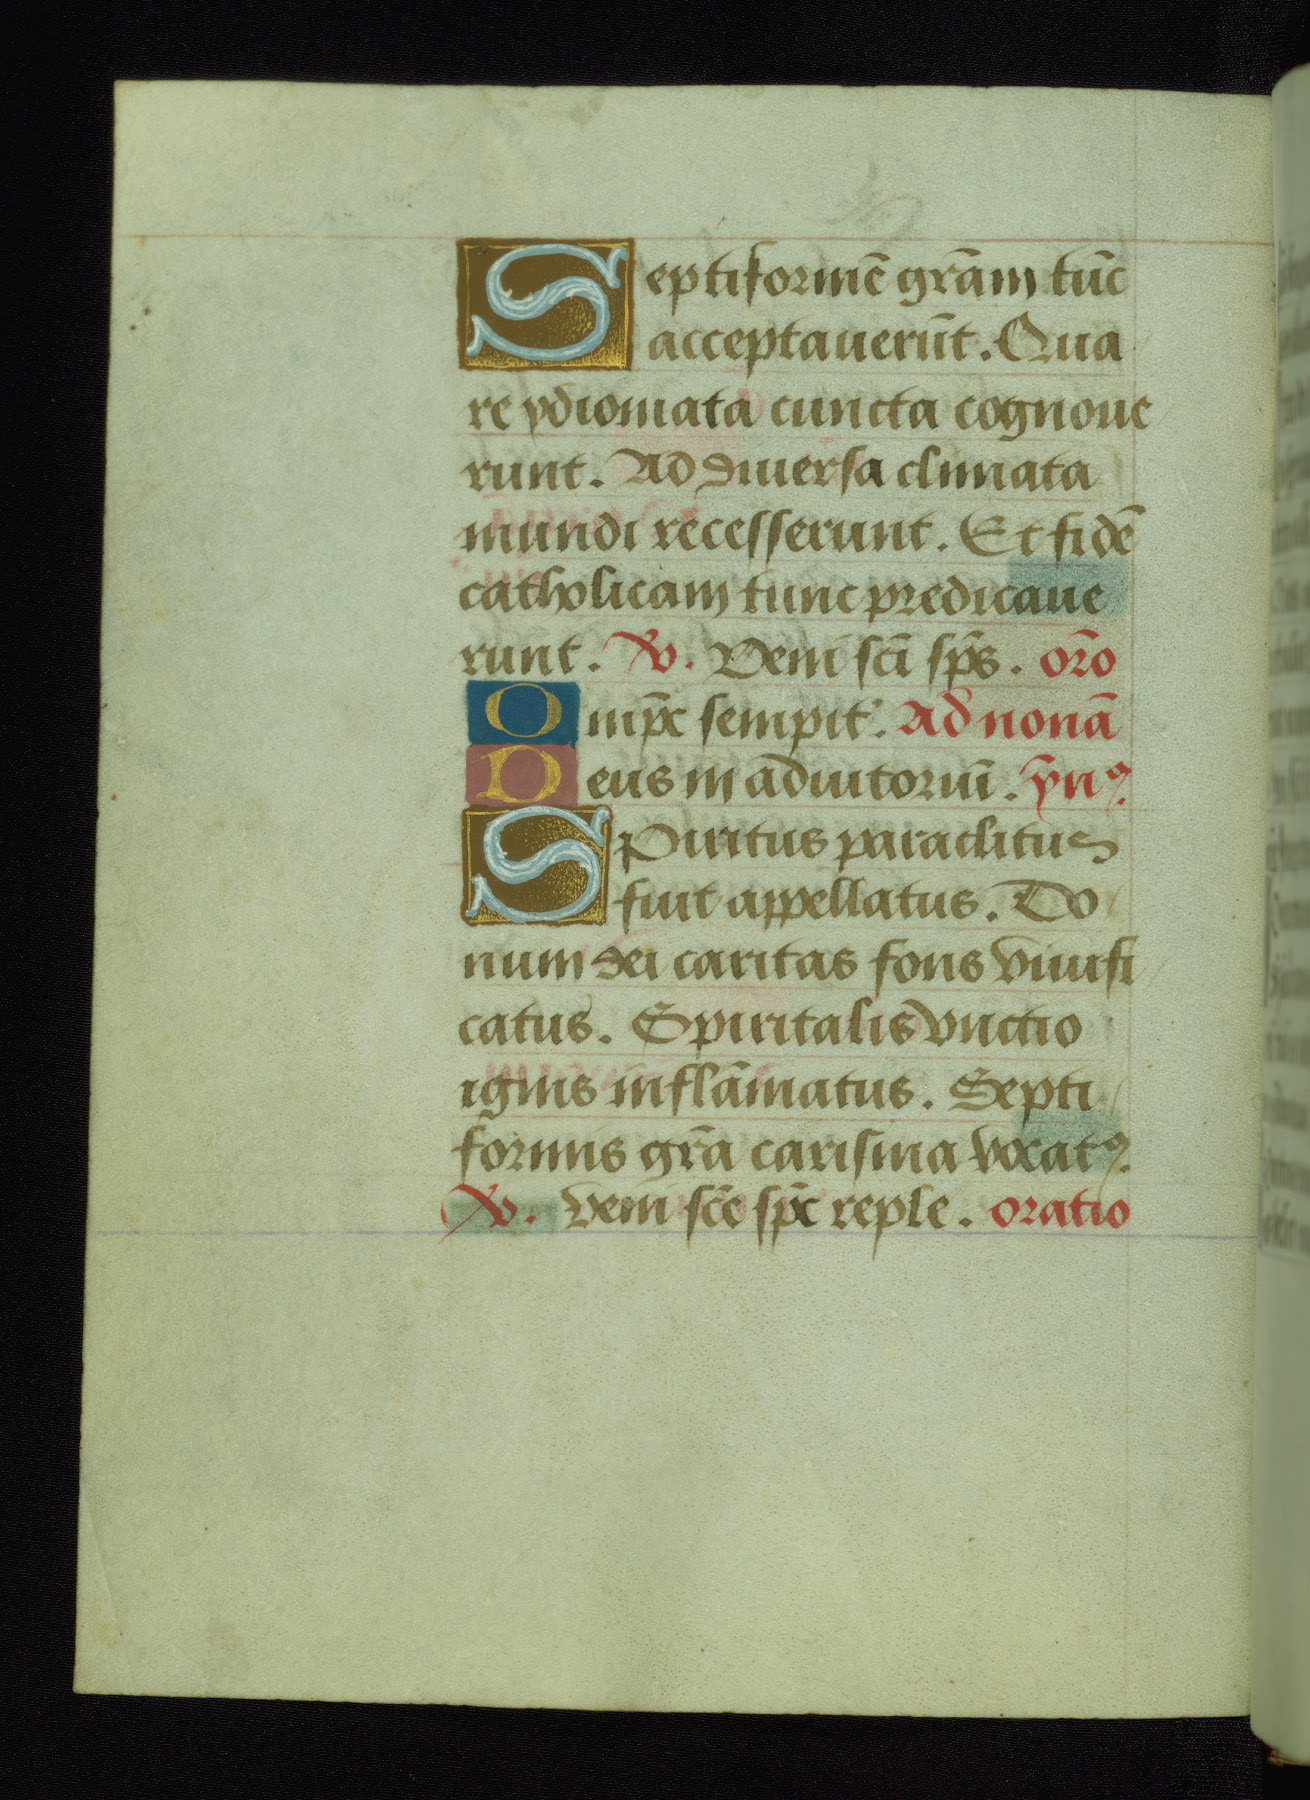 Septiformē gr̄am tūc
acceptauerūt. Qua
re ydiomata cuncta cognoue
runt. Ad diuersa climata
mundi recesserunt. Et fidē
catholicam tunc predicaue
runt. V. Veni sc̄i sp̄s. or̄o
Omp̄c sempit'. Ad nonā
Deus in adiutoriū. ȳnꝰ.
Spiritus paraclitus
fuit appellatus. Do
num dei caritas fons viuifi
catus. Spiritalis vnctio
ignis inflāmatus. Septi
formis gr̄a carisma vocatꝰ.
V. Veni sc̄e sp̄c reple. oratio